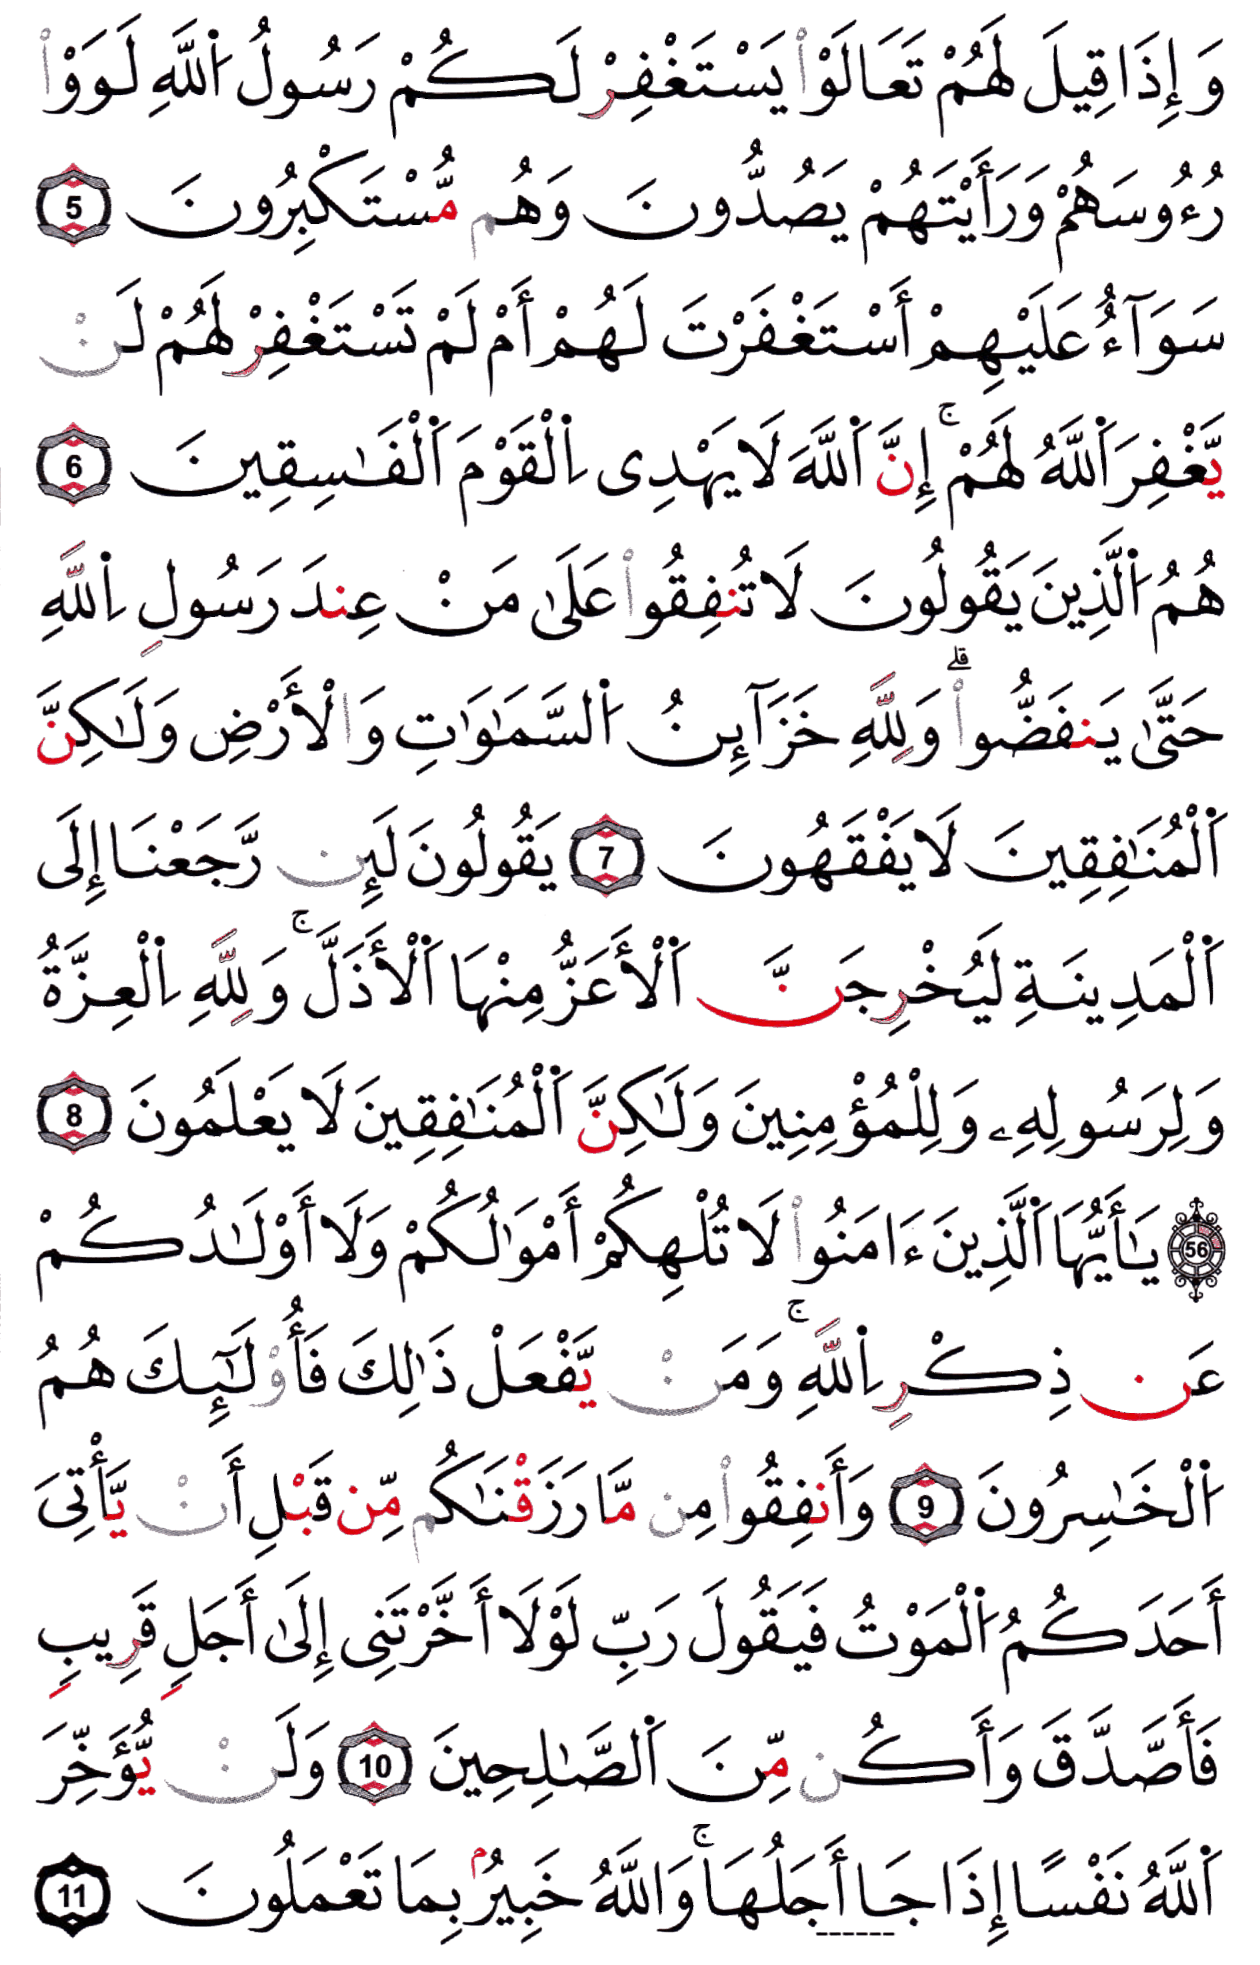 وَإِذَا قِيلَ لَهُمْ تَعَالَوْاْ يَسْتَغْفِرْ لَكُمْ رَسُولُ اُ۬للَّهِ لَوَوْاْ
رُءُوسَهُمْ وَرَأَيْتَهُمْ يَصُدُّونَ وَهُم مُّسْتَكْبِرُونَ 5
سَوَآءٌ عَلَيْهِمْ أَسْتَغْفَرْتَ لَهُمْ أَمْ لَمْ تَسْتَغْفِرْ لَهُمْ لَنْ
يَّغْفِرَ اَ۬للَّهُ لَهُمْ ۚ إِنَّ اَ۬للَّهَ لَا يَهْدِى اِ۬لْقَوْمَ اَ۬لْفَٰسِقِينَ 6
هُمُ اَ۬لَّذِينَ يَقُولُونَ لَا تُنفِقُواْ عَلَىٰ مَنْ عِندَ رَسُولِ اِ۬للَّهِ
حَتَّىٰ يَنفَضُّواْ ۗ وَلِلَّهِ خَزَآئِنُ اُ۬لسَّمَٰوَٰتِ وَالْأَرْضِ وَلَٰكِنَّ
اَ۬لْمُنَٰفِقِينَ لَا يَفْقَهُونَ 7 يَقُولُونَ لَئِن رَّجَعْنَا إِلَى
اَ۬لْمَدِينَةِ لَيُخْرِجَنَّ اَ۬لْأَعَزُّ مِنْهَا اَ۬لْأَذَلَّ ۚ وَلِلَّهِ اِ۬لْعِزَّةُ
وَلِرَسُولِهِۦ وَلِلْمُؤْمِنِينَ وَلَٰكِنَّ اَ۬لْمُنَٰفِقِينَ لَا يَعْلَمُونَ 8
56 يَٰأَيُّهَا اَ۬لَّذِينَ ءَامَنُواْ لَا تُلْهِكُمْ أَمْوَٰلُكُمْ وَلَا أَوْلَٰدُكُمْ
عَن ذِكْرِ اِ۬للَّهِ ۚ وَمَنْ يَّفْعَلْ ذَٰلِكَ فَأُوْلَٰٓئِكَ هُمُ
اُ۬لْخَٰسِرُونَ 9 وَأَنفِقُواْ مِن مَّا رَزَقْنَٰكُم مِّن قَبْلِ أَنْ يَّأْتِىَ
أَحَدَكُمُ اُ۬لْمَوْتُ فَيَقُولَ رَبِّ لَوْلَا أَخَّرْتَنِى إِلَىٰ أَجَلٍ قَرِيبٍ
فَأَصَّدَّقَ وَأَكُن مِّنَ اَ۬لصَّٰلِحِينَ 10 وَلَنْ يُّؤَخِّرَ
اَ۬للَّهُ نَفْسًا إِذَا جَا أَجَلُهَا ۚ وَاللَّهُ خَبِيرُۢ بِمَا تَعْمَلُونَ 11